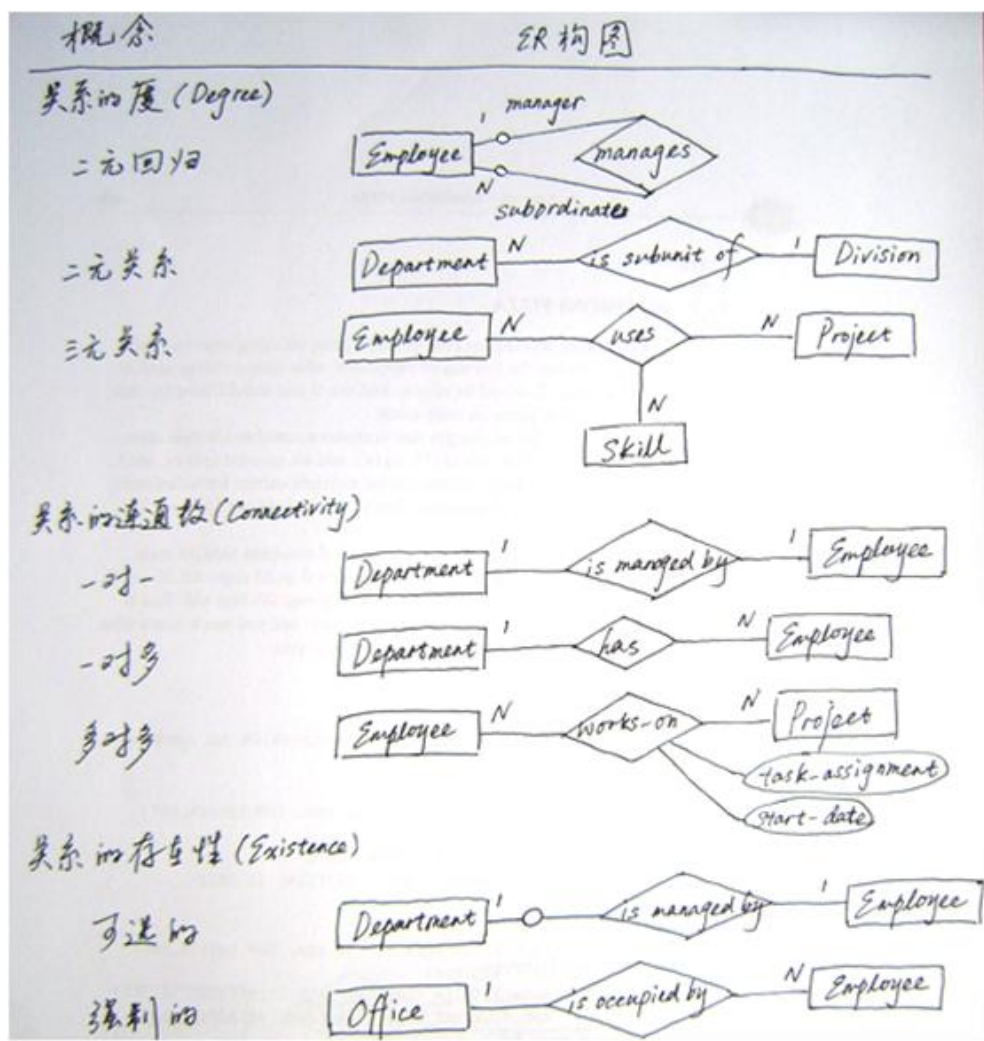 概念 ER构图
关系的度 (Degree)
1 manager
二元回归 Employee manages
N subordinates
二元关系 Department N is subunit of 1 Division
三元关系 Employee N uses N Project
N
Skill
关系的连通数 (Connectivity)
一对一 Department 1 is managed by 1 Employee
一对多 Department 1 has N Employee
多对多 Employee N works-on N Project
task-assignment
start-date
关系的存在性 (Existence)
可选的 Department 1 is managed by 1 Employee
强制的 Office 1 is occupied by N Employee